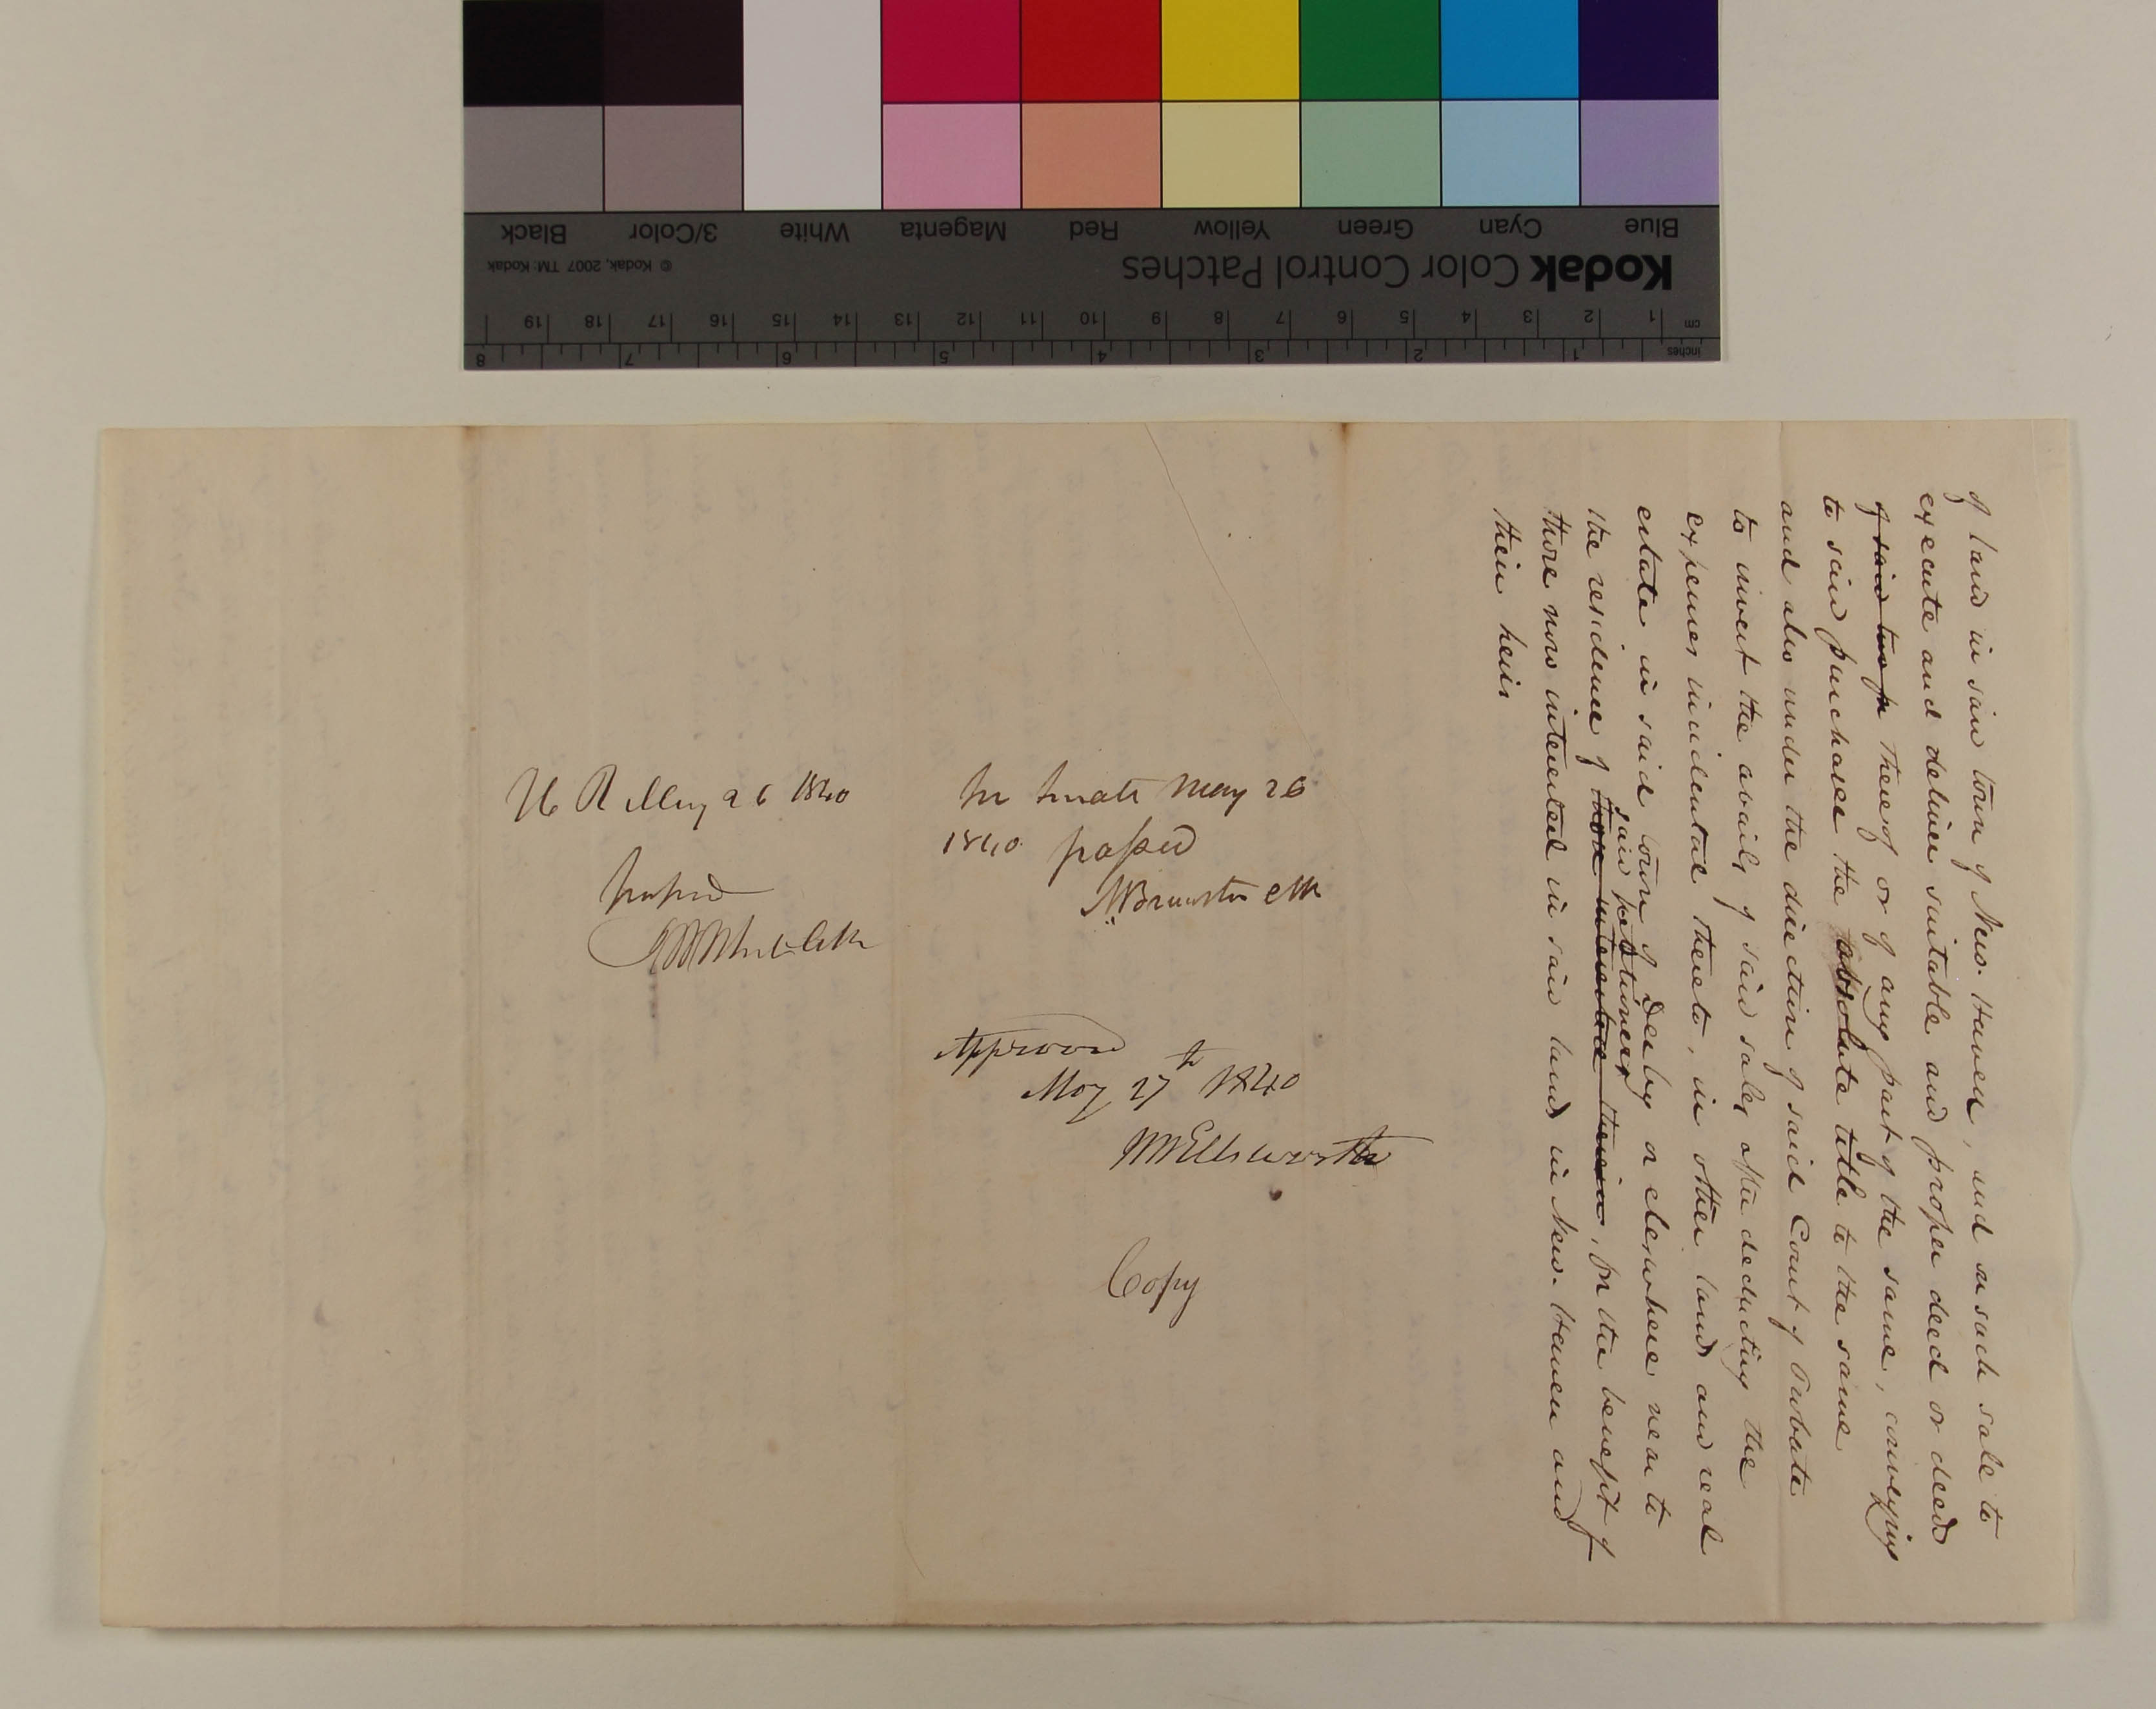 of land in said town of New-Haven, and on such sale to
execute and deliver suitable and proper deed or deeds
of said two p thereof or of any part of the same, conveying
to said purchaser the absolute title to the same
and also under the direction of said Court of Probate
to invest the avails of said sales after deducting the
expenses incidental thereto, in other land and real
estate in said town of Derby or elsewhere near to
said petitioners
the residence of those interested therein, for the benefit of
those now interested in said land in New-Haven and
their heirs
In Senate May 26
1840 passed
Brewster Clk
Approved
May 27th 1840
W W Ellsworth
Copy
H R May 26 1840
passed
Clk
Kodak Color Control Patches
© Kodak, 2007 TM: Kodak
Blue Cyan Green Yellow Red Magenta White 3/Color Black
cm 1 2 3 4 5 6 7 8 9 10 11 12 13 14 15 16 17 18 19
inches 1 2 3 4 5 6 7 8